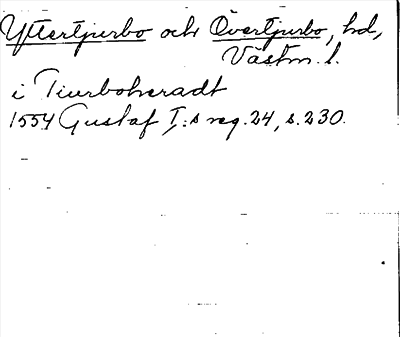 Yttertjurbo och Övertjurbo, hd,
Västm. l.
i Tiurboheradt
1554 Gustaf I:s reg. 24, s. 230.